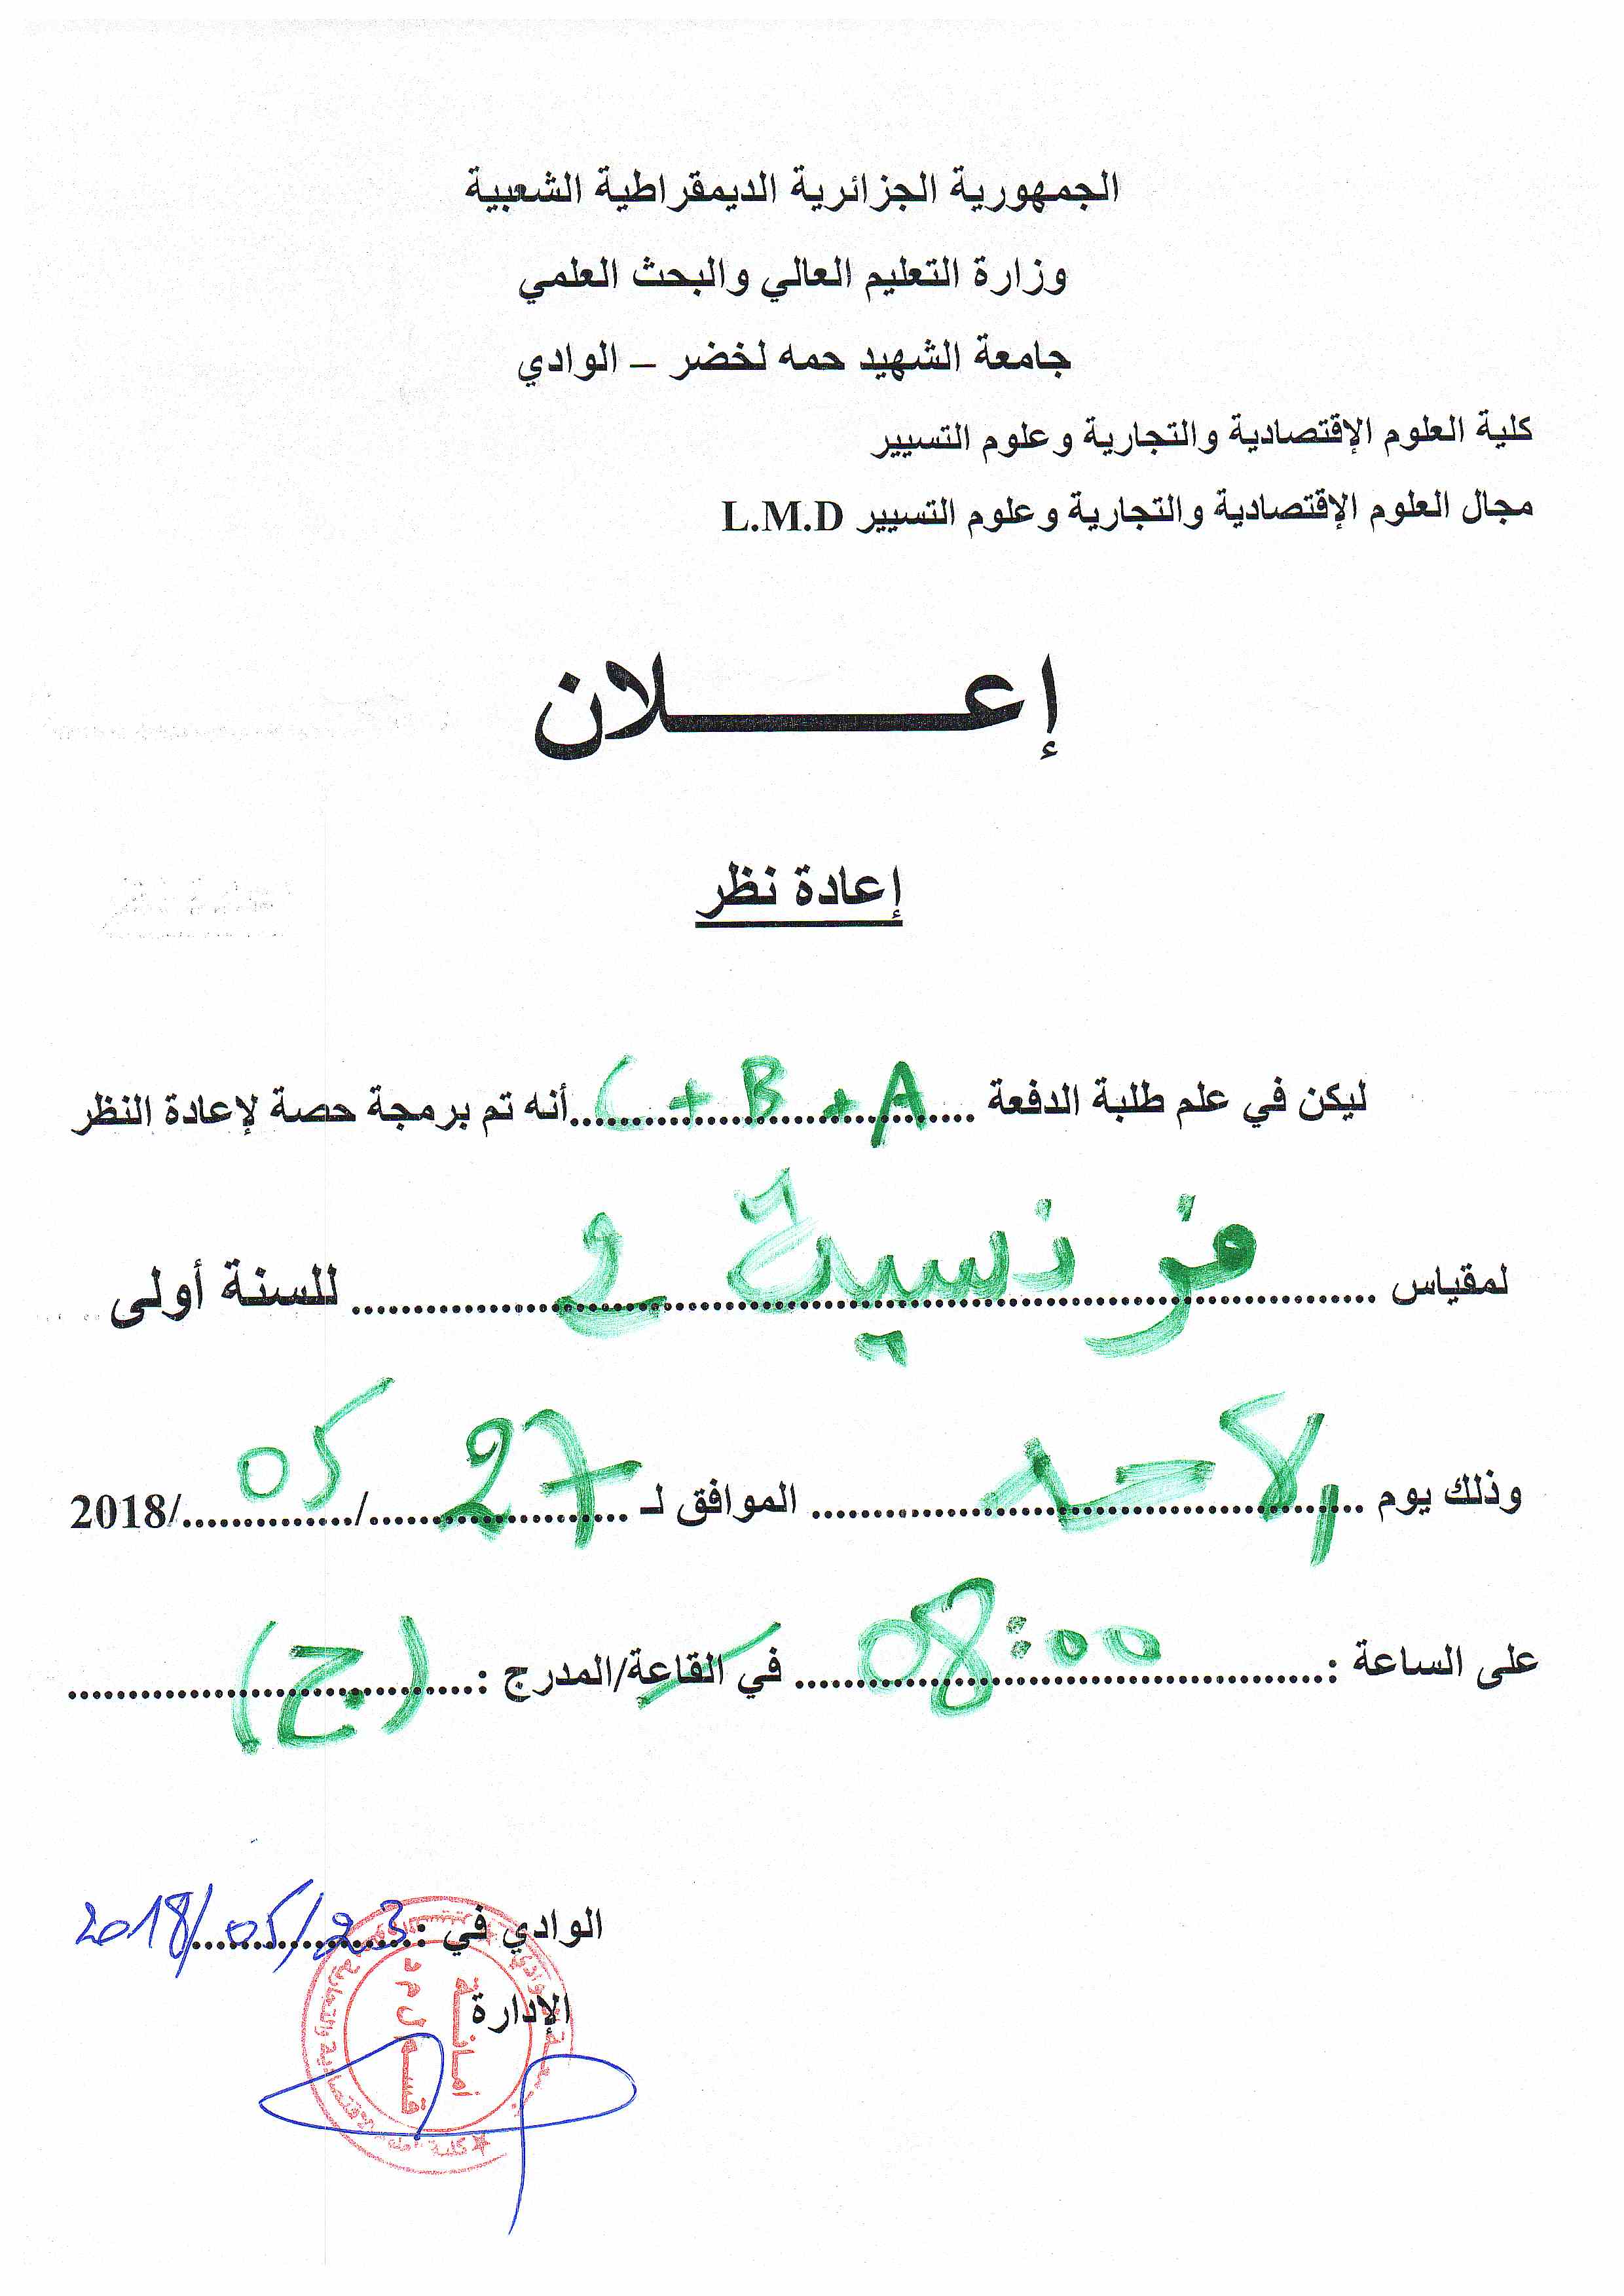 الجمهورية الجزائرية الديمقراطية الشعبية
وزارة التعليم العالي والبحث العلمي
جامعة الشهيد حمه لخضر – الوادي
كلية العلوم الإقتصادية والتجارية وعلوم التسيير
مجال العلوم الإقتصادية والتجارية وعلوم التسيير L.M.D
إعـــــــــلان
إعادة نظر
ليكن في علم طلبة الدفعة ..... A + B + C ..... أنه تم برمجة حصة لإعادة النظر
لمقياس ..... فرنسية 2 ..... للسنة أولى
وذلك يوم ..... الأحد ..... الموافق لـ 27/05/2018
على الساعة : ..... 08:00 ..... في القاعة/المدرج : ..... (ج) .....
الوادي في : 2018/05/23
الإدارة
أمانة
قسم ل م د